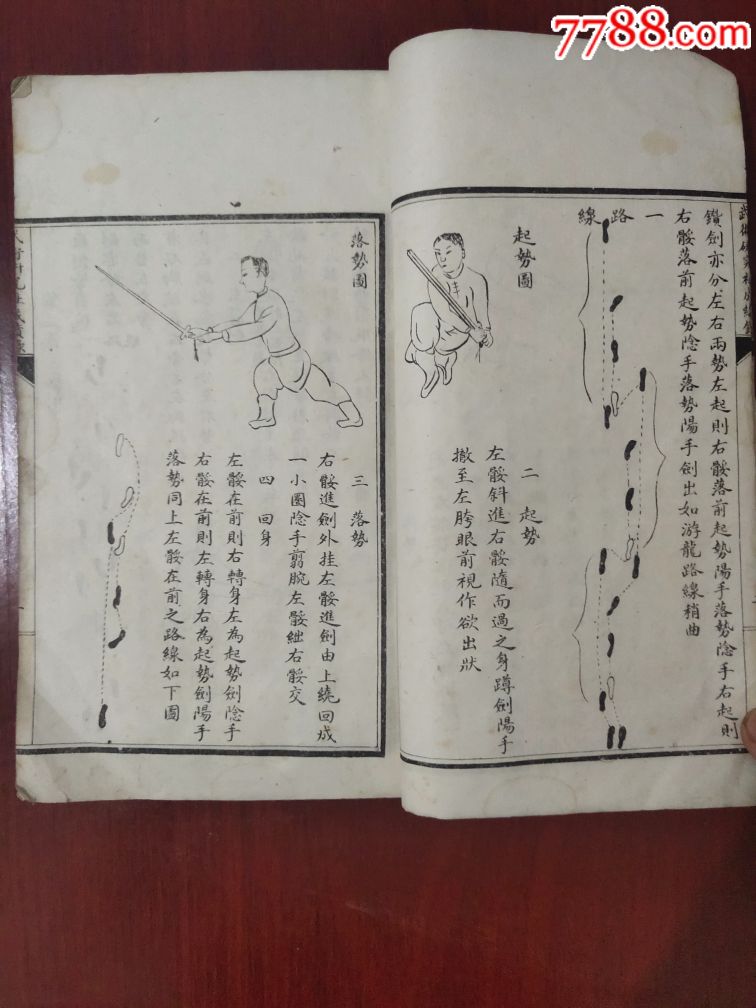 7788.com
鑽劍亦分左右兩勢左起則右骽落前起勢陽手落勢陰手右起則
右骽落前起勢陰手落勢陽手劍出如游龍路線稍曲
一
路線
起勢圖
二 起勢
左骽斜進右骽隨而過之身蹲劍陽手
撤至左胯眼前視作欲出狀
落勢圖
三 落勢
右骽進劍外挂左骽進劍由上繞回成
一小圈陰手翦腕左骽絀右骽交
四 回身
左骽在前則右轉身左為起勢劍陰手
右骽在前則左轉身右為起勢劍陽手
落勢同上左骽在前之路線如下圖